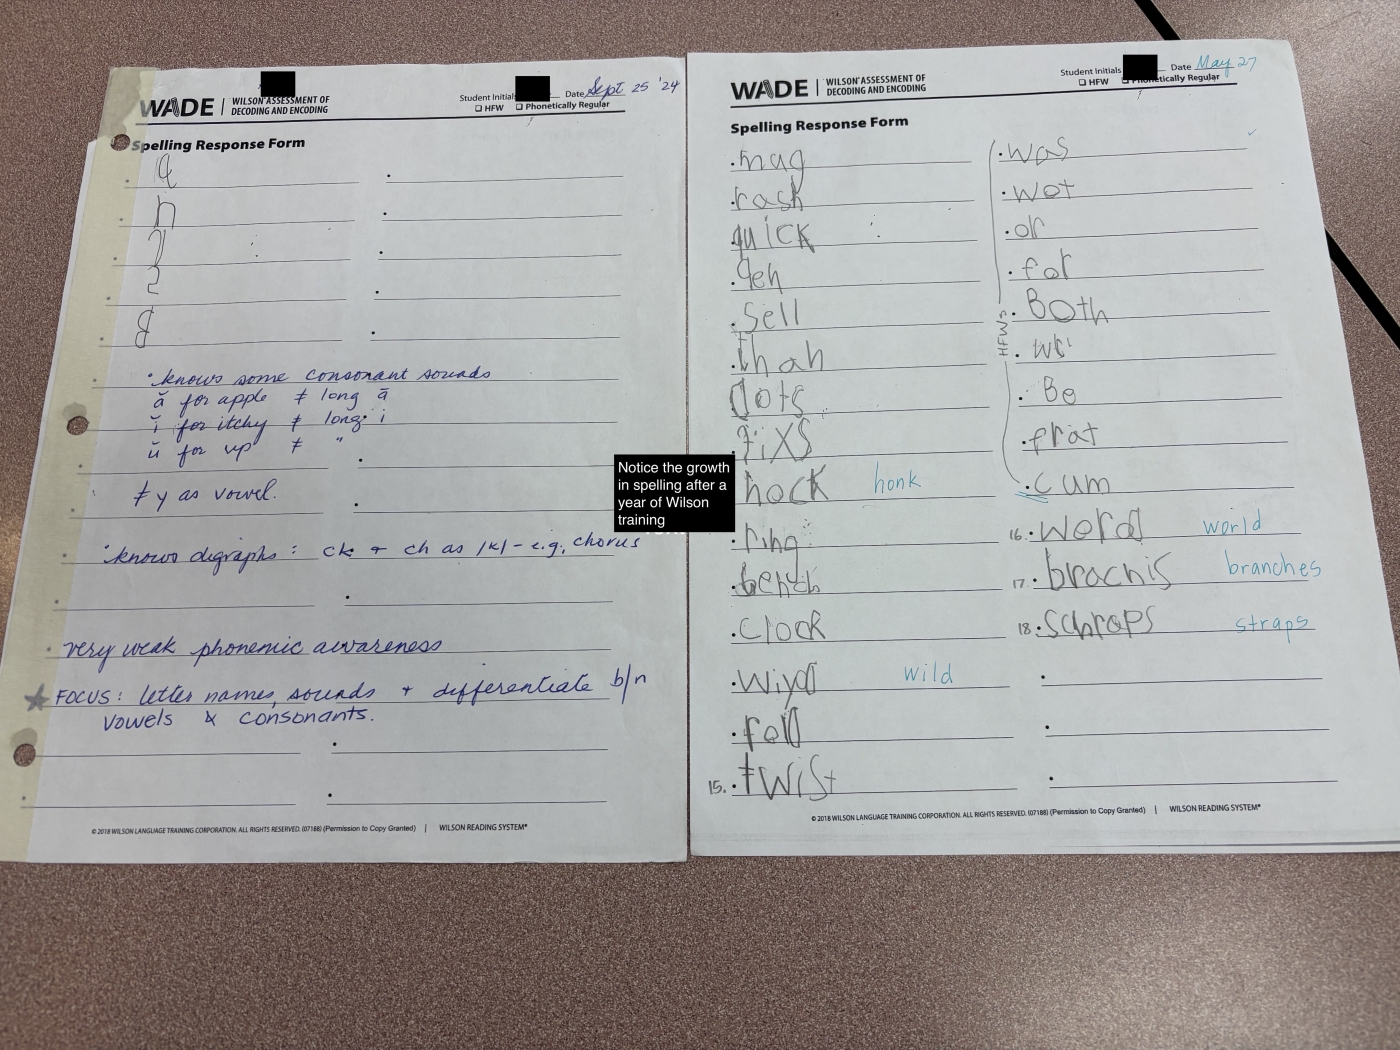 WADE | WILSON ASSESSMENT OF
DECODING AND ENCODING
Student Initials
Date Sept 25 '24
❑ HFW ❑ Phonetically Regular
Spelling Response Form
n
• knows some consonant sounds
ă for apple ≠ long ā
ĭ for itchy ≠ long i
ŭ for up ≠ "
≠ y as vowel.
• knows digraphs : ck + ch as /k/ - e.g. chorus
very weak phonemic awareness
★ FOCUS: letter names, sounds + differentiate b/n
vowels & consonants.
© 2018 WILSON LANGUAGE TRAINING CORPORATION. ALL RIGHTS RESERVED. (07188) (Permission to Copy Granted) | WILSON READING SYSTEM®
Notice the growth
in spelling after a
year of Wilson
training
WADE | WILSON ASSESSMENT OF
DECODING AND ENCODING
Student Initials
Date May 27
❑ HFW Phonetically Regular
Spelling Response Form
mug
rash
quick
Sell
than
dots
fixS
hock honk
ring
bench
Clock
wiyd wild
fold
15. twist
HFWs
was
wot
or
for
Both
Be
frat
cum
16. werd world
17. brachis branches
18. schraps straps
© 2018 WILSON LANGUAGE TRAINING CORPORATION. ALL RIGHTS RESERVED. (07188) (Permission to Copy Granted) | WILSON READING SYSTEM®